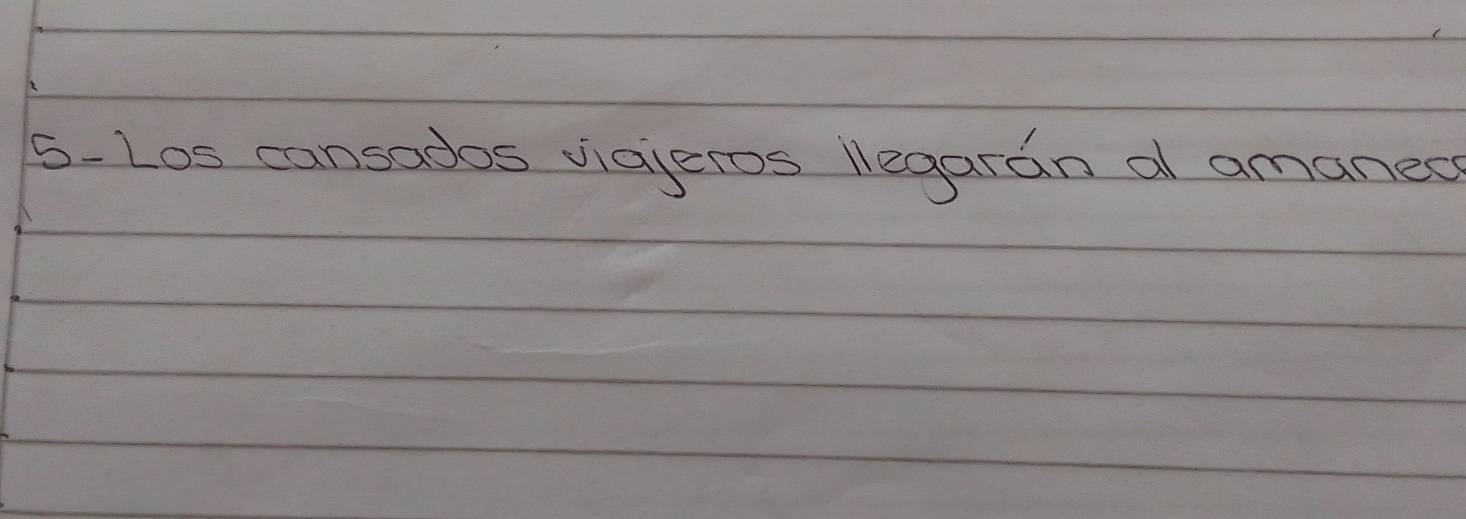 5- Los cansados viajeros llegarán al amanec